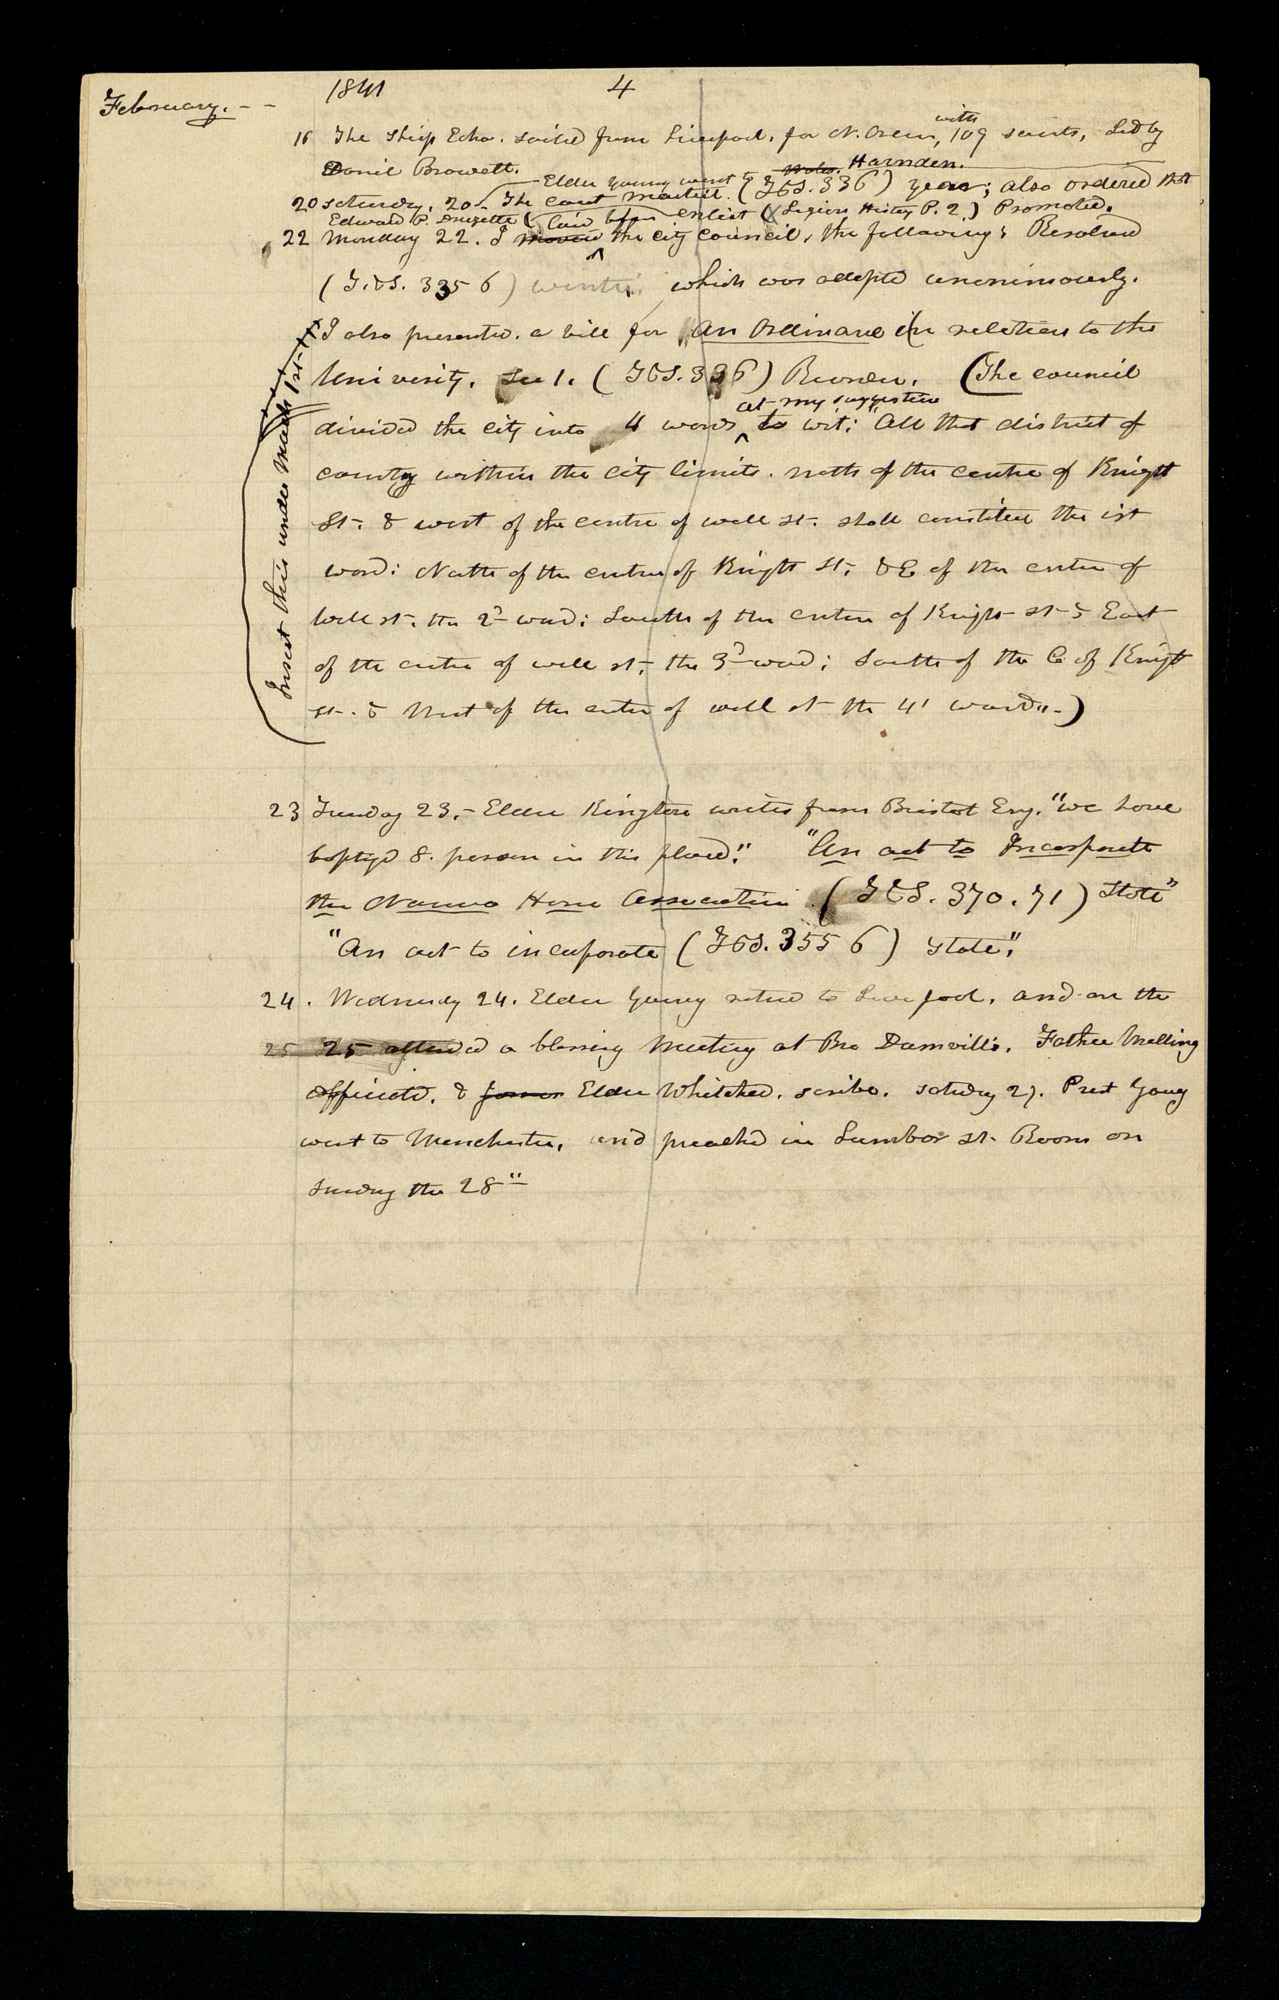 February. - -
1841
4
16 The Ship Echo. sailed from Liverpool. for N. Orleans, with 109 saints, Led by
Daniel Browett.
Elder Young went to Wales. Harnden.
20 Saturday. 20.- The court martial. (T&S. 336) year; also ordered that
Edward P. Duzette (Laid before enlist (Legion History P. 2.) Promoted.
22 Monday 22. I moved the city council, the following; Resolved
(T.&S. 335 6) which was adoptd unanimously.
I also presented. a bill for "An Ordinance (in relation to the
University. Sec 1. (T&S. 336) Recorder. (The council
divided the city into 4 wards at my suggestion to wit: "All that district of
county within the city limits. north of the centre of Knight
St. & west of the centre of well st. shall constitute the 1st
ward: North of the centre of Knight St. & E of the centre of
Well st. the 2d ward; South of the centre of Knight st & East
of the centre of well st. the 3d ward; South of the C of Knight
st. & West of the center of well st the 4t ward".)
Insert this under March 1st
23 Tuesday 23.- Elder Kington writes from Bristol Eng. "we have
baptizd 8. person in this place". "An act to Incorporate
the Nauvoo House Association (T&S. 370.71) State"
"An act to incorporate (T&S. 355 6) State".
24. Wednesday 24. Elder Young returd to Liverpool. and on the
25 25 attended a blessing Meeting at Bro Damvills. Father Melling
officiatd. & Elder Whitehed. scribe. saturday 27. Prest Young
went to Manchester, and preachd in Lumbar st. Room on
sunday the 28"